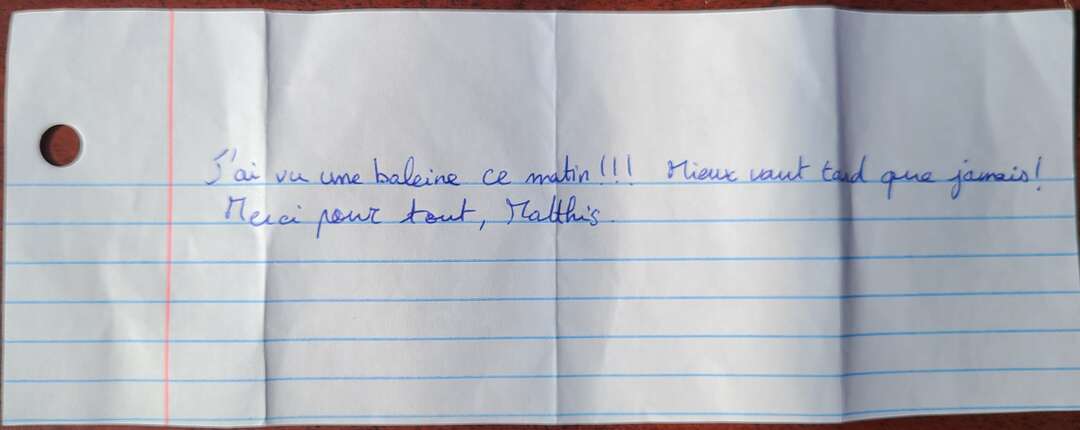 J'ai vu une baleine ce matin!!! Mieux vaut tard que jamais!
Merci pour tout, Matthis.